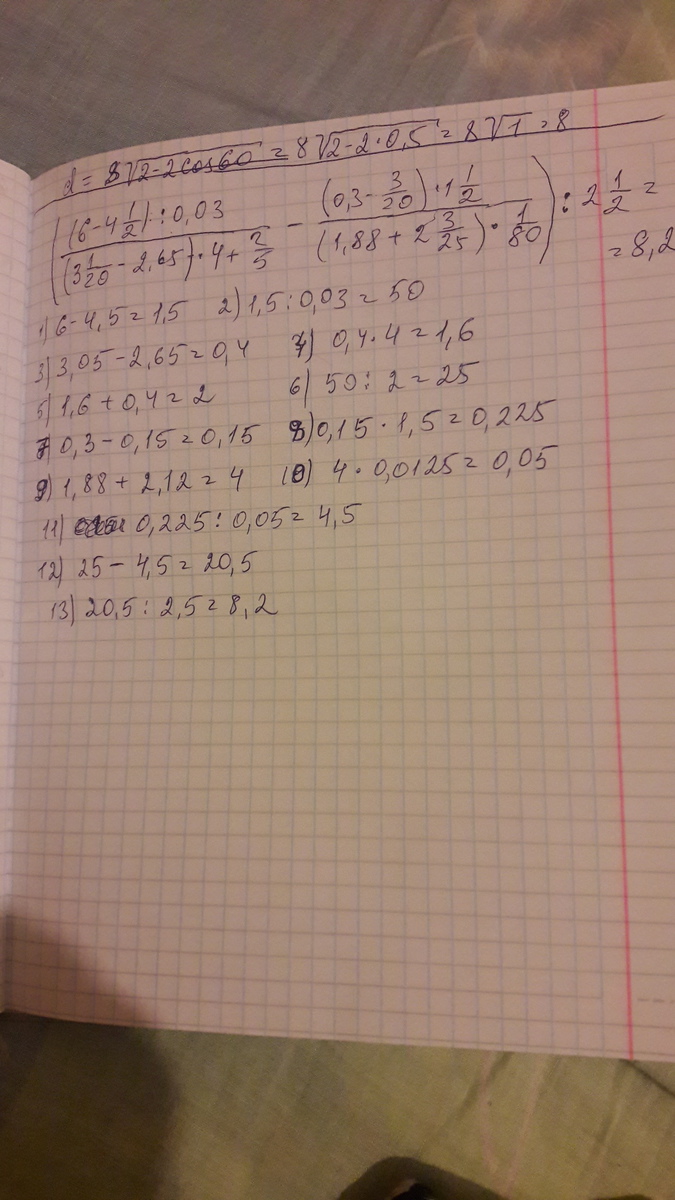 d = 8√(2-2cos60) = 8√(2-2·0,5) = 8√1 = 8
((6-4 1/2):0,03 / (3 1/20 - 2,65)·4+2/5 - (0,3-3/20)·1 1/2 / (1,88+2 3/25)·1/80) : 2 1/2 =
= 8,2
1) 6-4,5=1,5 2) 1,5:0,03=50
3) 3,05-2,65=0,4 4) 0,4·4=1,6
5) 1,6+0,4=2 6) 50:2=25
7) 0,3-0,15=0,15 8) 0,15·1,5=0,225
9) 1,88+2,12=4 10) 4·0,0125=0,05
11) 0,225:0,05=4,5
12) 25-4,5=20,5
13) 20,5:2,5=8,2